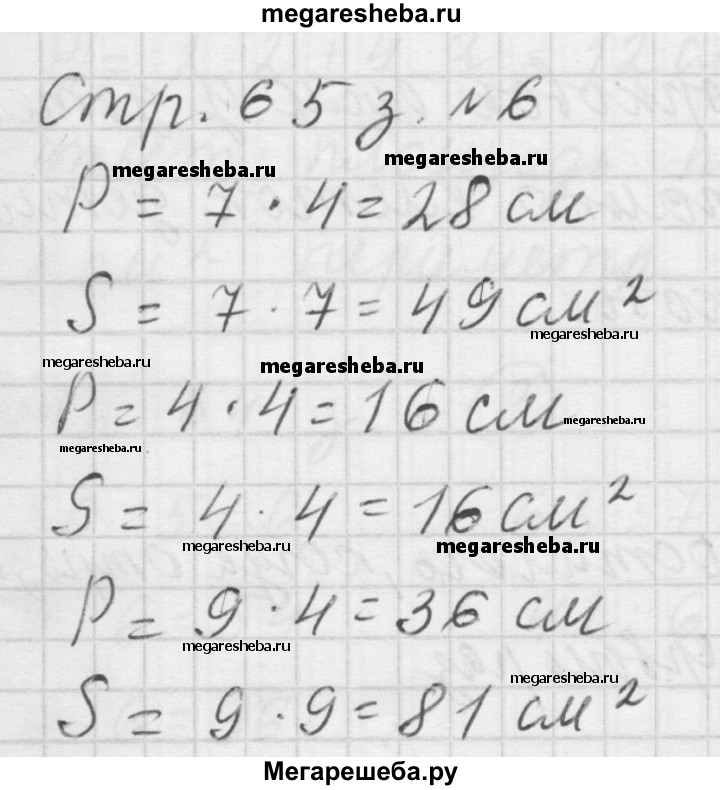 megaresheba.ru
Стр. 65 з. №6
megaresheba.ru
megaresheba.ru
P = 7 · 4 = 28 см
S = 7 · 7 = 49 см²
megaresheba.ru
megaresheba.ru
megaresheba.ru
P = 4 · 4 = 16 см
megaresheba.ru
megaresheba.ru
S = 4 · 4 = 16 см²
megaresheba.ru
megaresheba.ru
P = 9 · 4 = 36 см
megaresheba.ru
megaresheba.ru
S = 9 · 9 = 81 см²
Мегарешеба.ру